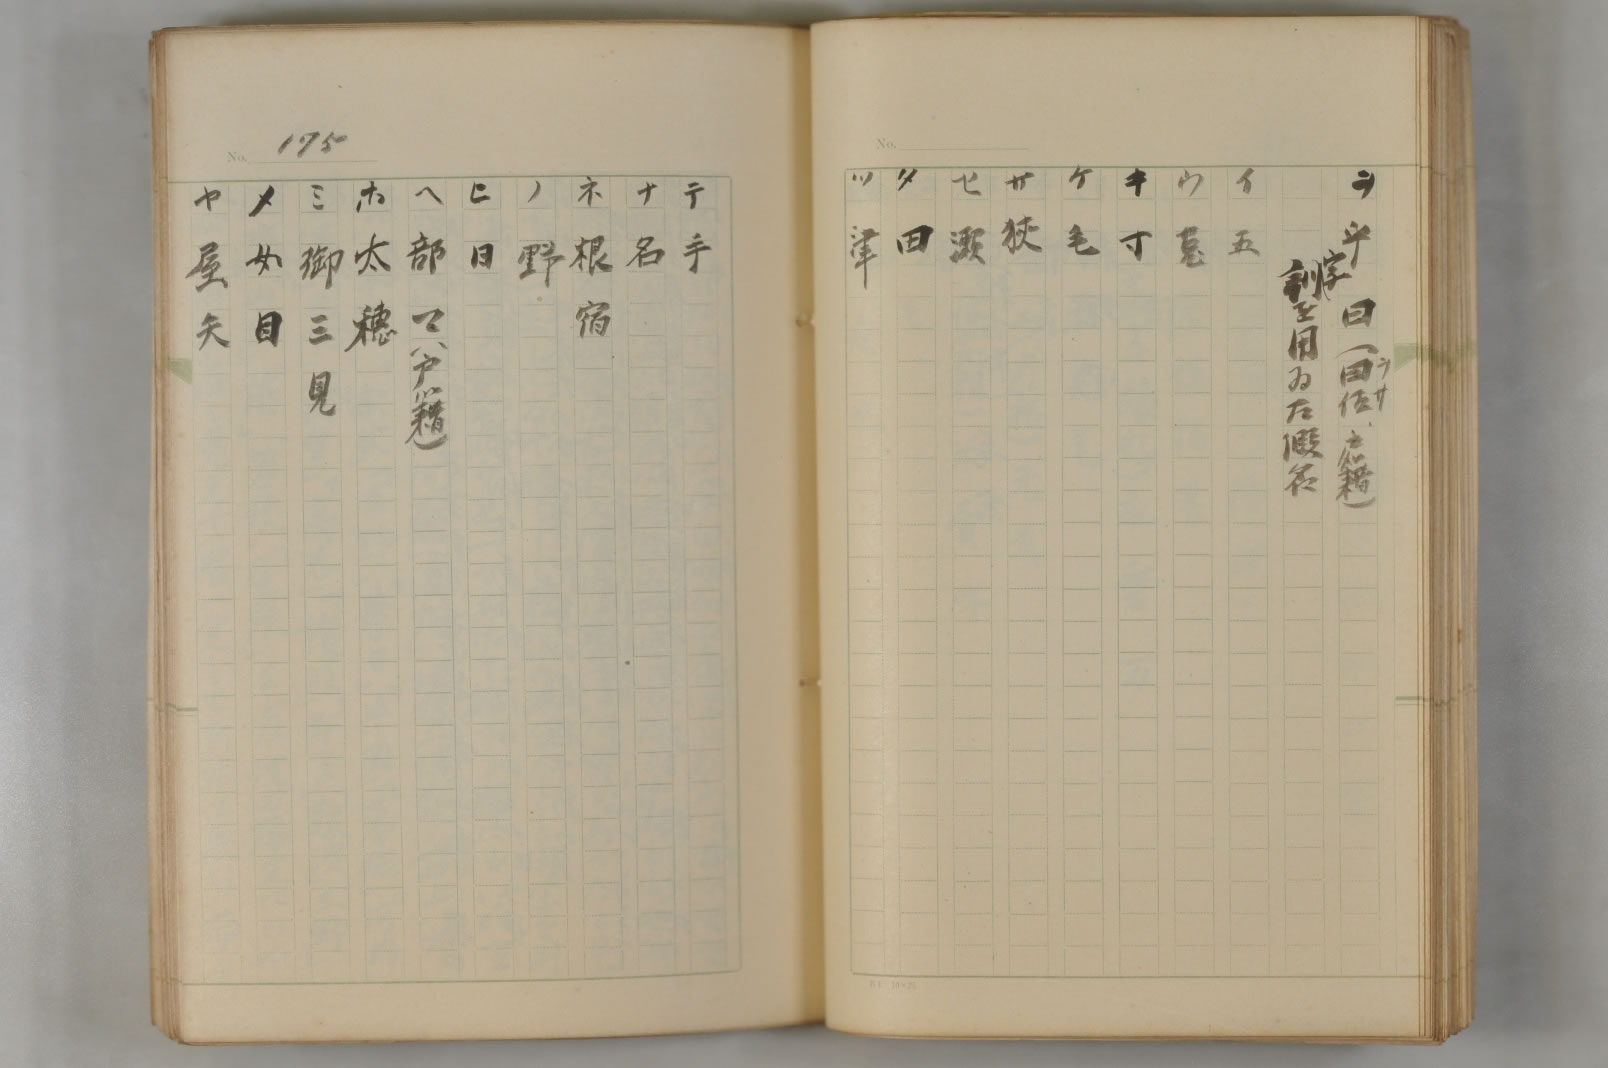 No.
ヲ 乎 曰(曰佐ヲサ、戸籍)
字訓を用ゐた假名
イ 五
ウ 菟
キ 寸
ケ 毛
サ 狭
セ 瀬
タ 田
ツ 津
No. 175
テ 手
ナ 名
ネ 根 宿
ノ 野
ヒ 日
ヘ 部 マ(戸籍)
ホ 太 穂
ミ 御 三 見
メ 女 目
ヤ 屋 矢